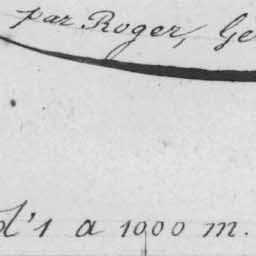 par Roger, Gé
d'1 a 1000 m.